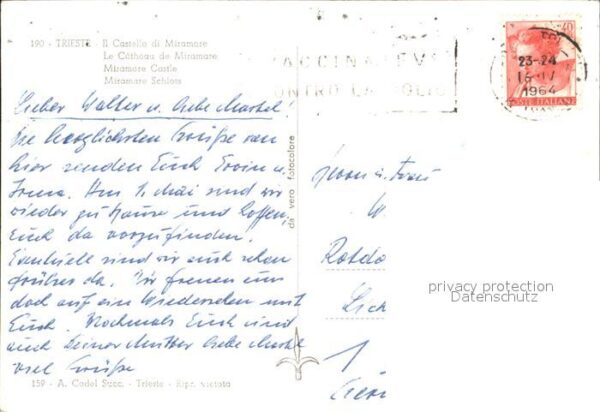 190 - TRIESTE - Il Castello di Miramare
Le Câteau de Miramare
Miramare Castle
Miramare Schloss
VACCINATEVI
CONTRO LA POLIO
23-24
1964
40
POSTE ITALIANE
Lieber Walter u. liebe Christel!
Die herzlichsten Grüße von
hier senden Euch Erwin u.
Irma. Am 1. Mai sind wir
wieder zu Hause und hoffen,
Euch da vorzufinden.
Eventuell sind wir auch schon
früher da. Wir freuen uns
doch auf ein Wiedersehen mit
Euch. Nochmals Euch und
auch Deiner Mutter liebe
viel Grüße
da vera fotocolore
Herrn u. Frau
W.
Lich
1
privacy protection
Datenschutz
159 - A. Cadel Succ. - Trieste - Ripr. vietata